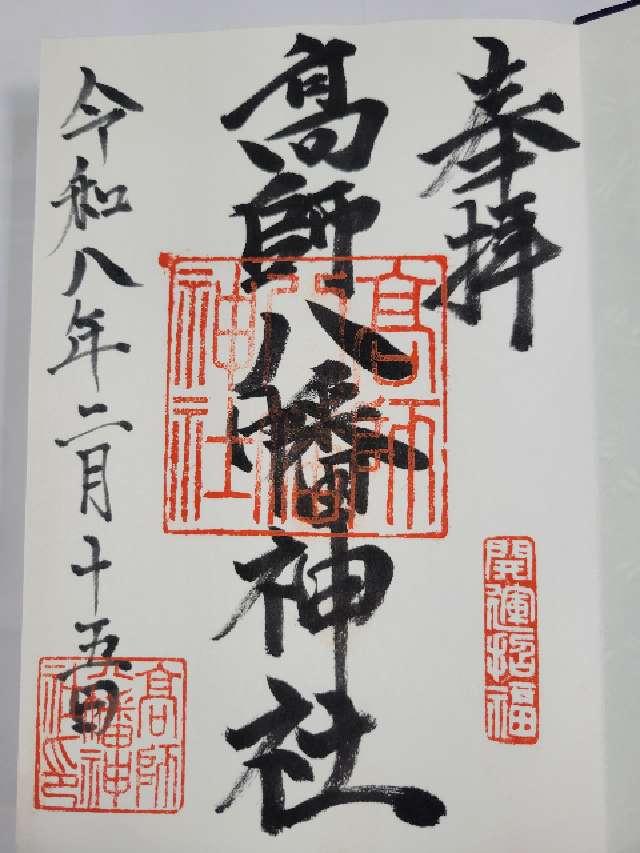 奉拝
開運招福
髙師八幡神社
高師八幡神社
令和八年二月十五日
高師八幡神社印